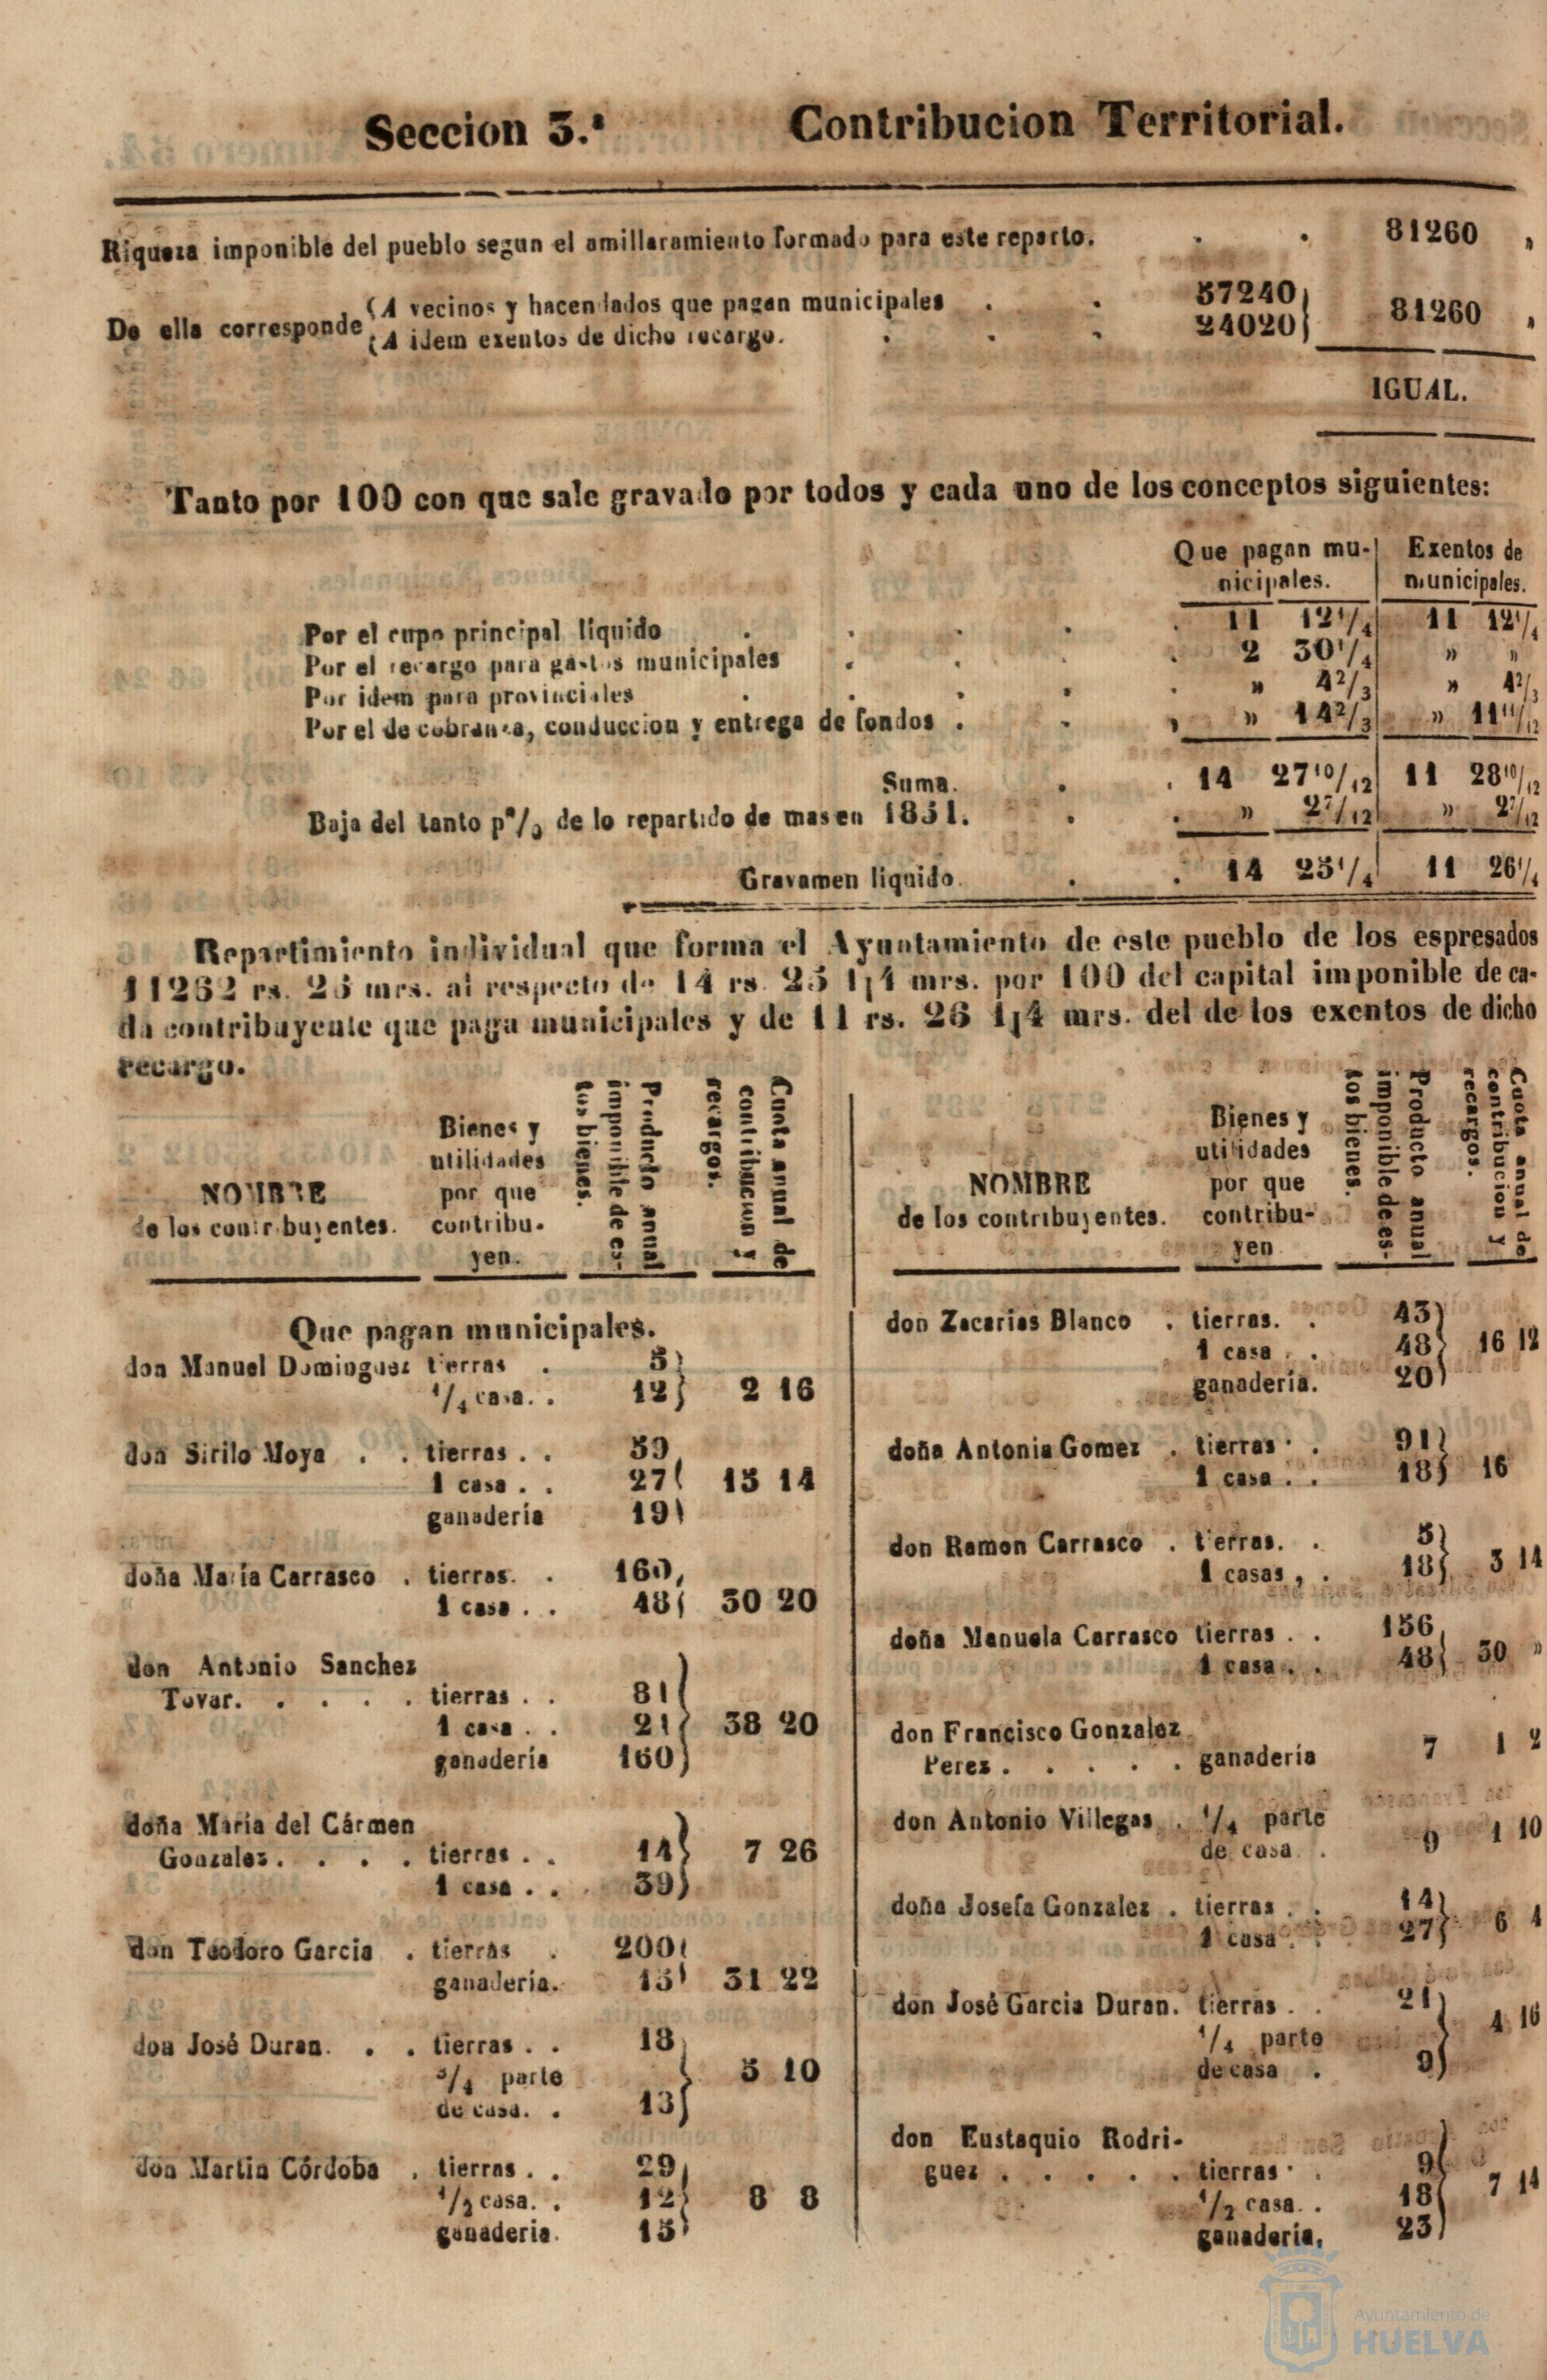 Seccion 3.ª Contribucion Territorial.
Riqueza imponible del pueblo segun el amillaramiento formado para este reparto. . . 81260 „
De ella corresponde (A vecinos y hacendados que pagan municipales . . 57240) 81260 „
(A idem exentos de dicho recargo. . . . 24020)
IGUAL.
Tanto por 100 con que sale gravado por todos y cada uno de los conceptos siguientes:
Que pagan mu- | Exentos de
nicipales. | municipales.
Por el cupo principal líquido . . . . . 11 12 1/4 | 11 12 1/4
Por el recargo para gastos municipales . . . . 2 30 1/4 | » »
Por idem para provinciales . . . . . » 4 2/3 | » 4 2/3
Por el de cobranza, conduccion y entrega de fondos . . . » 14 2/3 | » 11 11/12
Suma. . . 14 27 10/12 | 11 28 10/12
Baja del tanto p°/0 de lo repartido de mas en 1851. . . » 2 7/12 | » 2 7/12
Gravamen líquido. . . 14 25 1/4 | 11 26 1/4
Repartimiento individual que forma el Ayuntamiento de este pueblo de los espresados
11262 rs. 25 mrs. al respecto de 14 rs. 25 1¡4 mrs. por 100 del capital imponible de ca-
da contribuyente que paga municipales y de 11 rs. 26 1¡4 mrs. del de los exentos de dicho
recargo.
NOMBRE
de los contribuyentes.
Bienes y
utilidades
por que
contribu-
yen.
Producto anual
imponible de es-
tos bienes.
Cuota anual de
contribucion y
recargos.
Que pagan municipales.
don Manuel Dominguez tierras . 5)
1/4 casa. . 12) 2 16
don Sirilo Moya . . tierras . . 59
1 casa . . 27( 15 14
ganadería 19)
doña María Carrasco . tierras. . 160,
1 casa . . 48( 30 20
don Antonio Sanchez
Tovar. . . . . tierras . . 81)
1 casa . . 21) 38 20
ganadería 160)
doña María del Cármen
Gonzalez. . . . . tierras . . 14) 7 26
1 casa . . 39)
don Teodoro Garcia . tierras . 200)
ganadería. 15) 31 22
don José Duran. . . tierras . . 18)
3/4 parte 5 10
de casa. . 13)
don Martin Córdoba . tierras . . 29)
1/2 casa. . 12) 8 8
ganaderia. 15)
NOMBRE
de los contribuyentes.
Bienes y
utilidades
por que
contribu-
yen
Producto anual
imponible de es-
tos bienes.
Cuota anual de
contribucion y
recargos.
don Zacarias Blanco . tierras. . 43)
1 casa . . 48) 16 12
ganadería. 20)
doña Antonia Gomez . tierras . 91)
1 casa . . 18) 16
don Ramon Carrasco . tierras. . 5)
1 casas , . 18) 3 14
doña Manuela Carrasco tierras . . 156
1 casa . . 48) 30 »
don Francisco Gonzalez
Perez . . . . . ganadería 7 1 2
don Antonio Villegas . 1/4 parte
de casa . 9 1 10
doña Josefa Gonzalez . tierras . . 14)
1 casa . . 27) 6 4
don José Garcia Duran. tierras . . 21)
1/4 parte 4 16
de casa . 9)
don Eustaquio Rodri-
guez . . . . . tierras . 9)
1/2 casa. . 18) 7 14
ganadería, 23)
Ayuntamiento de
HUELVA